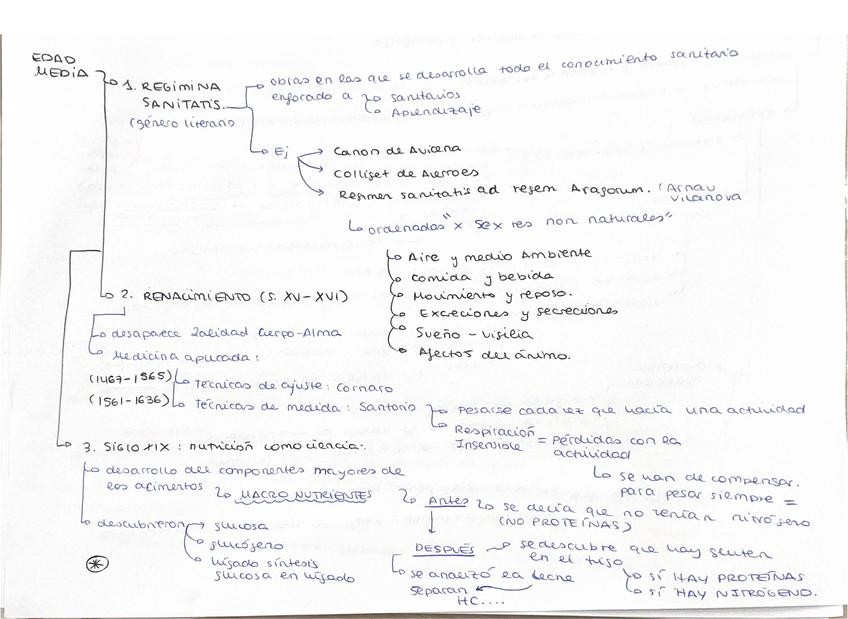 EDAD
MEDIA
1. REGIMINA
SANITATIS.
(género literario
obras en las que se desarrolla todo el conocimiento sanitario
enfocado a sanitarios
Aprendizaje
Ej
Canon de Avicena
Colliget de Averroes
Regimen sanitatis ad regem Aragorum. (Arnau
Vilanova
ordenadas "x sex res non naturales"
Aire y medio Ambiente
Comida y bebida
Movimiento y reposo.
Excreciones y secreciones
Sueño - vigilia
Afectos del ánimo.
2. RENACIMIENTO (S. XV - XVI)
desaparece 2alidad Cuerpo-Alma
Medicina aplicada:
(1467-1565) Técnicas de ajuste: Cornaro
(1561-1636) Técnicas de medida: Santorio
Pesarse cada vez que hacía una actividad
Respiración
Insensible = pérdidas con la
actividad
se han de compensar.
para pesar siempre =
3. Siglo XIX: nutrición como ciencia.
desarrollo del componentes mayores de
los alimentos
MACRONUTRIENTES
Antes se decía que no tenían nitrógeno
(NO PROTEÍNAS)
descubrieron glucosa
glucógeno
hígado síntesis
glucosa en hígado
DESPUÉS se descubre que hay gluten
en el trigo
SÍ HAY PROTEÍNAS
SÍ HAY NITRÓGENO.
se analizó la leche
separan
HC....
*